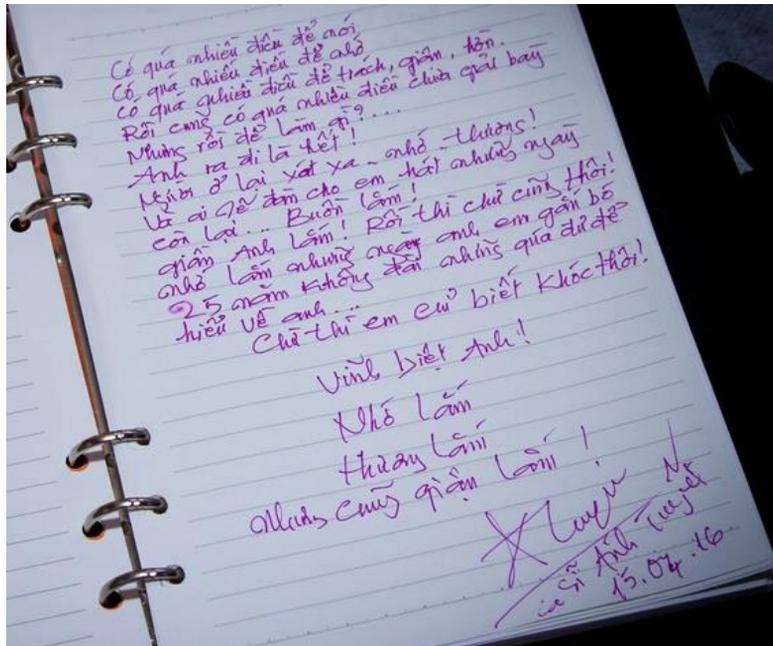 Có quá nhiều điều để nói
Có quá nhiều điều để nhớ
Có quá nhiều điều để trách, giận, hờn.
Rồi cũng có quá nhiều điều chưa giải bày
Nhưng rồi để làm gì?....
Anh ra đi là hết!
Người ở lại xót xa - nhớ - thương!
Và ai sẽ đàn cho em hát những ngày
còn lại... Buồn lắm!
giận Anh lắm! Rồi thì chứ cũng thôi!
nhớ lắm những ngày anh em gắn bó
25 năm không dài nhưng quá đủ để
hiểu về anh...
Chừ thì em cứ biết khóc thôi!
Vĩnh biệt Anh!
Nhớ lắm
thương lắm
Nhưng cũng giận lắm!
ca sĩ Ánh Tuyết
15.04.16